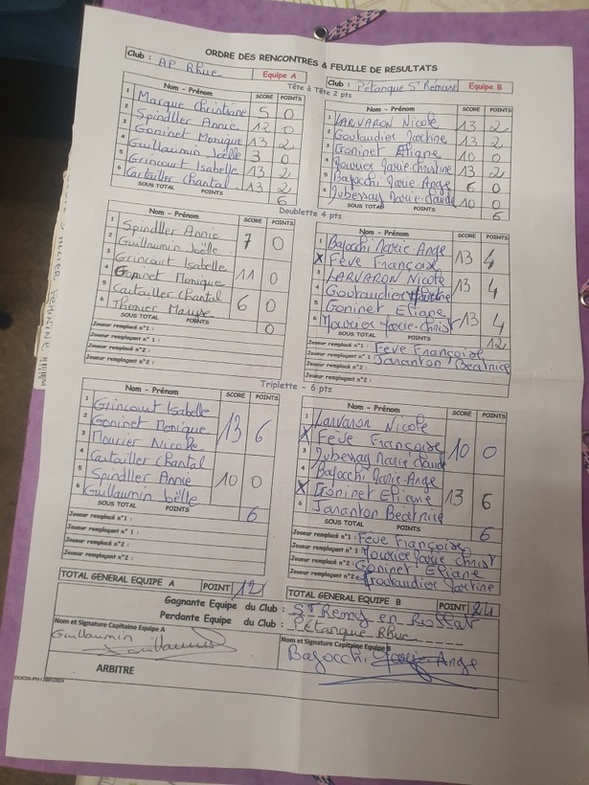 ORDRE DES RENCONTRES & FEUILLE DE RESULTATS
Club : AP Rhue Equipe A
Club : Pétanque St Rémoise Equipe B
Tête à Tête 2 pts
Nom - Prénom SCORE POINTS
1 Marque Christiane 5 0
2 Spindller Annie 12 0
3 Goninet Monique 13 2
4 Guillaumin Joëlle 3 0
5 Grincourt Isabelle 13 2
6 Cartailler Chantal 13 2
SOUS TOTAL POINTS 6
Nom - Prénom SCORE POINTS
1 LARVARON Nicole 13 2
2 Goutaudier Martine 13 2
3 Goninet Eliane 10 0
4 Mourier Marie christine 13 2
5 Bajocchi Marie Ange 6 0
6 Jubessay Marie claude 10 0
SOUS TOTAL POINTS 6
Doublette 4 pts
Nom - Prénom SCORE POINTS
1 Spindller Annie 7 0
2 Guillaumin Joëlle
3 Grincourt Isabelle 11 0
4 Goninet Monique
5 Cartailler Chantal 6 0
6 Thonier
SOUS TOTAL POINTS 0
Joueur remplacé n°1 :
Joueur remplaçant n°1 :
Joueur remplacé n°2 :
Joueur remplaçant n°2 :
Nom - Prénom SCORE POINTS
1 Bajocchi Marie Ange 13 4
X Fève Françoise
3 LARVARON Nicole 13 4
4 Goutaudier Martine
5 Goninet Eliane 13 4
6 Mourier Marie-Christ
SOUS TOTAL POINTS 12
Joueur remplacé n°1 : Feve Françoise
Joueur remplaçant n°1 : Jaranton Béatrice
Joueur remplacé n°2 :
Joueur remplaçant n°2 :
Triplette - 6 pts
Nom - Prénom SCORE POINTS
1 Grincourt Isabelle 13 6
2 Goninet Monique
3 Mourier Nicole
4 Cartailler Chantal 10 0
5 Spindller Annie
6 Guillaumin Joëlle
SOUS TOTAL POINTS 6
Joueur remplacé n°1 :
Joueur remplaçant n°1 :
Joueur remplacé n°2 :
Joueur remplaçant n°2 :
Nom - Prénom SCORE POINTS
1 Larvaron Nicole 10 0
X Fève Françoise
3 Jubessay Marie claude
4 Bajocchi Marie-Ange 13 6
X Goninet Eliane
6 Jaranton Béatrice
SOUS TOTAL POINTS 6
Joueur remplacé n°1 : Fève Françoise
Joueur remplaçant n°1 : Mourier Marie Christ
Joueur remplacé n°2 : Goninet Eliane
Joueur remplaçant n°2 : Goutaudier Martine
TOTAL GENERAL EQUIPE A POINT 12
TOTAL GENERAL EQUIPE B POINT 24
Gagnante Equipe du Club : St Remy en Rollat
Perdante Equipe du Club : Pétanque Rhue
Nom et Signature Capitaine Equipe A
Guillaumin
Nom et Signature Capitaine Equipe B
Bajocchi Marie Ange
ARBITRE